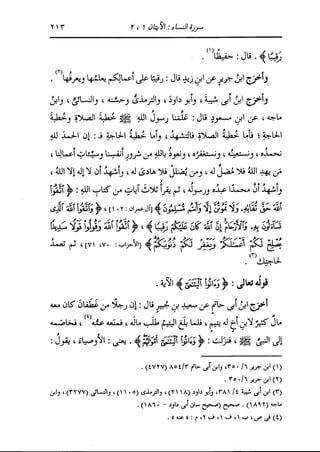 سورة النساء : الآيتان ١ ، ٢
٢١٣
رَقِيبًا﴾ . قال : حفيظًا(١) .
وأخرَج ابنُ جريرٍ عن ابنِ زيدٍ قال : رقيبًا على أعمالِكم يعلمُها ويعرفُها(٢) .
وأخرَج ابنُ أبى شيبةَ ، وأبو داودَ ، والترمذىُّ وحسَّنه ، والنسائىُّ ، وابنُ
ماجه ، عن ابنِ مسعودٍ قال : علَّمنا رسولُ اللهِ ﷺ خُطبةَ الصلاةِ وخُطبةَ
الحاجةِ ؛ فأما خُطبةُ الصلاةِ فالتشهدُ ، وأما خُطبةُ الحاجةِ فـ : إن الحمدَ للهِ
نحمدُه ، ونستعينُه ، ونستغفرُه ، ونعوذُ باللهِ من شرورِ أنفسِنا وسيئاتِ أعمالِنا ،
مَن يهدِ اللهُ فلا مُضلَّ له ، ومن يُضللْ فلا هادىَ له ، وأشهدُ أن لا إله إلا اللهُ ،
وأشهدُ أنَّ محمدًا عبدُه ورسولُه ، ثم يقرأُ ثلاثَ آياتٍ من كتابِ اللهِ : ﴿ٱتَّقُوا۟
ٱللَّهَ حَقَّ تُقَاتِهِۦ وَلَا تَمُوتُنَّ إِلَّا وَأَنتُم مُّسْلِمُونَ﴾ [آل عمران : ١٠٢] ، ﴿وَٱتَّقُوا۟ ٱللَّهَ ٱلَّذِى
تَسَآءَلُونَ بِهِۦ وَٱلْأَرْحَامَ إِنَّ ٱللَّهَ كَانَ عَلَيْكُمْ رَقِيبًا﴾ ، ﴿ٱتَّقُوا۟ ٱللَّهَ وَقُولُوا۟ قَوْلًا سَدِيدًا
يُصْلِحْ لَكُمْ أَعْمَـٰلَكُمْ وَيَغْفِرْ لَكُمْ ذُنُوبَكُمْ﴾ [الأحزاب : ٧٠، ٧١] ، ثم تعمدُ
لحاجتِك(٣) .
قولُه تعالى : ﴿وَءَاتُوا۟ ٱلْيَتَـٰمَىٰٓ﴾ الآية .
أخرَج ابنُ أبى حاتمٍ عن سعيدِ بنِ جبيرٍ قال : إن رجلًا من غَطَفانَ كان معه
مالٌ كثيرٌ لابنِ أخٍ له يتيمٍ ، فلما بلَغ اليتيمُ طلَب مالَه ، فمنَعه عمُّه(٤) ، فخاصَمه
إلى النبىِّ ﷺ ، فنزَلت : ﴿وَءَاتُوا۟ ٱلْيَتَـٰمَىٰٓ أَمْوَٰلَهُمْ﴾ . يعنى : الأوصياءَ ، يقولُ :
(١) ابن جرير ٦/ ٣٥٠، وابن أبى حاتم ٣/ ٨٥٤ (٤٧٢٧) .
(٢) ابن جرير ٦/ ٣٥٠ .
(٣) ابن أبى شيبة ٤/ ٣٨١، وأبو داود (٢١١٨) ، والترمذى (١١٠٥) ، والنسائى (٣٢٧٧) ، وابن
ماجه (١٨٩٢) . صحيح (صحيح سنن أبى داود - ١٨٦٠) .
(٤) فى ص ، ب ١، ف ١، ف ٢، م : « عنه » .